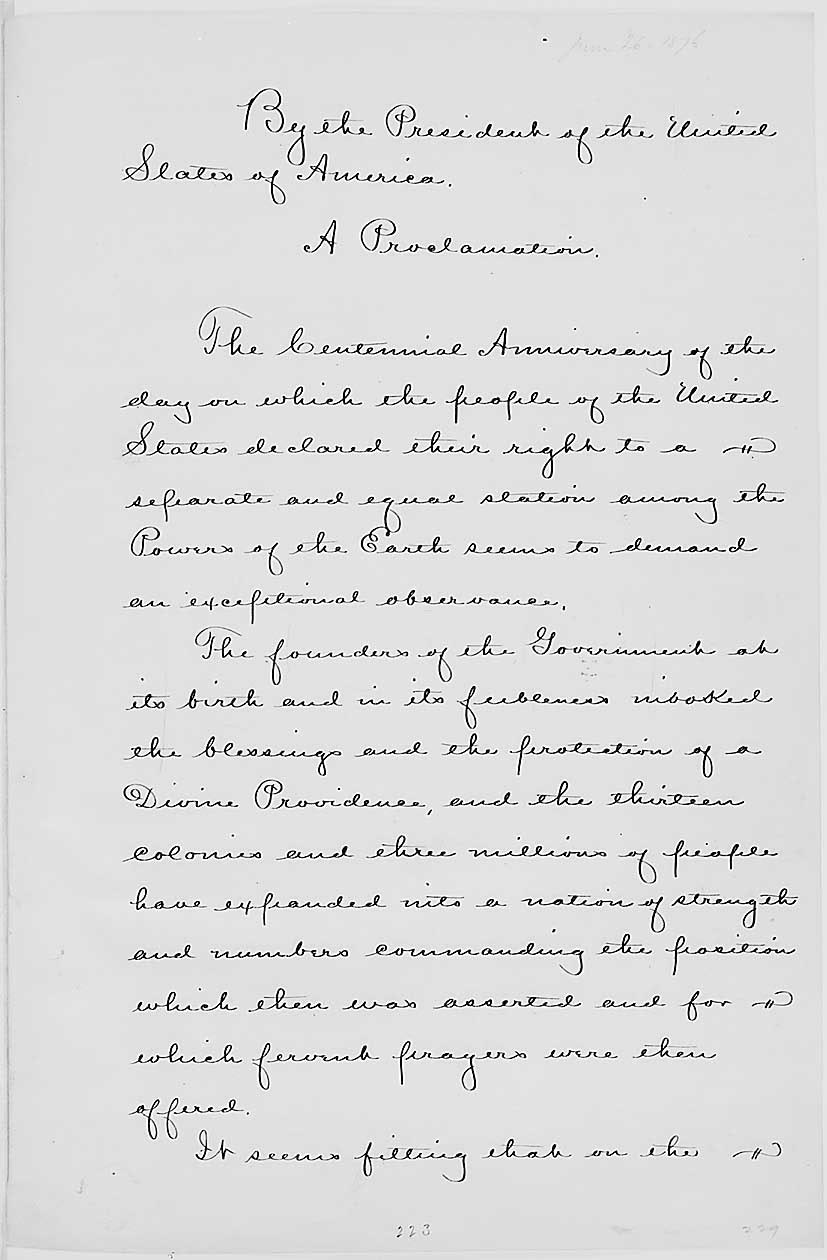 June 26. 1876
By the President of the United
States of America.
A Proclamation.
The Centennial Anniversary of the
day on which the people of the United
States declared their right to a
separate and equal station among the
Powers of the Earth seems to demand
an exceptional observance.
The founders of the Government at
its birth and in its feebleness invoked
the blessings and the protection of a
Divine Providence, and the thirteen
colonies and three millions of people
have expanded into a nation of strength
and numbers commanding the position
which then was asserted and for
which fervent prayers were then
offered.
It seems fitting that on the
223
229